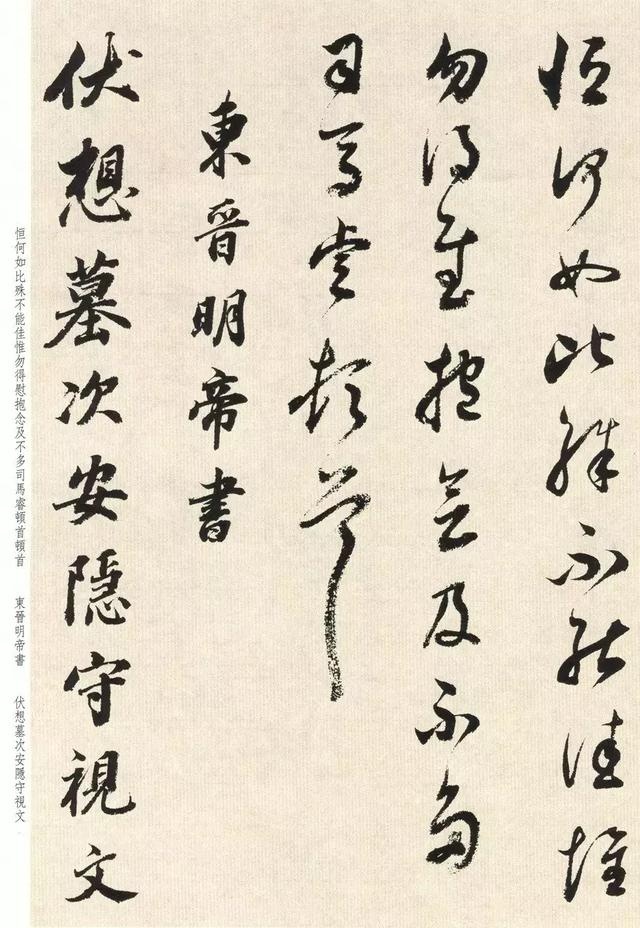 恒何如比殊不能佳惟
勿得慰抱念及不多
司馬睿頓首頓首
東晉明帝書
伏想墓次安隱守視文
恒何如比殊不能佳惟勿得慰抱念及不多司馬睿頓首頓首　東晉明帝書　伏想墓次安隱守視文